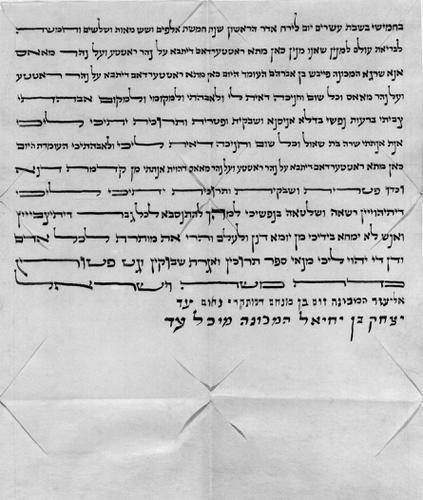 בחמישי בשבת עשרים יום לירח אדר הראשון שנת חמשת אלפים ושש מאות ושלשים וחמשה
לבריאת עולם למנין שאנו מנין כאן מתא ראטטערדאם דיתבא על נהר ראטטע ועל נהר מאאס
אנא שרגא המכונה פייבש בן אברהם העומד היום כאן מתא ראטטערדאם דיתבא על נהר ראטטע
ועל נהר מאאס וכל שום וחניכה דאית לי ולאבהתי ולמקומי ולמקום אבהתי
צביתי ברעות נפשי בדלא אניסנא ושבקית ופטרית ותרוכית יתיכי ליכי
אנת אנתתי שרה בת שאול וכל שום וחניכה דאית ליכי ולאבהתיכי העומדת היום
כאן מתא ראטטערדאם דיתבא על נהר ראטטע ועל נהר מאאס דהוית אנתתי מן קדמת דנא
וכדו פטרית ושבקית ותרוכית יתיכי ליכי
דיתיהוייין רשאה ושלטאה בנפשיכי למהך להתנסבא לכל גבר דיתיצבייין
ואנש לא ימחא בידיכי מן יומא דנן ולעלם והרי את מותרת לכל אדם
ודן די יהוי ליכי מנאי ספר תרוכין ואגרת שבוקין וגט פטורין
כדת משה וישראל
אליעזר המכונה בן מנחם דמתקרי נחום עד
יצחק בן יחיאל המכונה מיכל עד